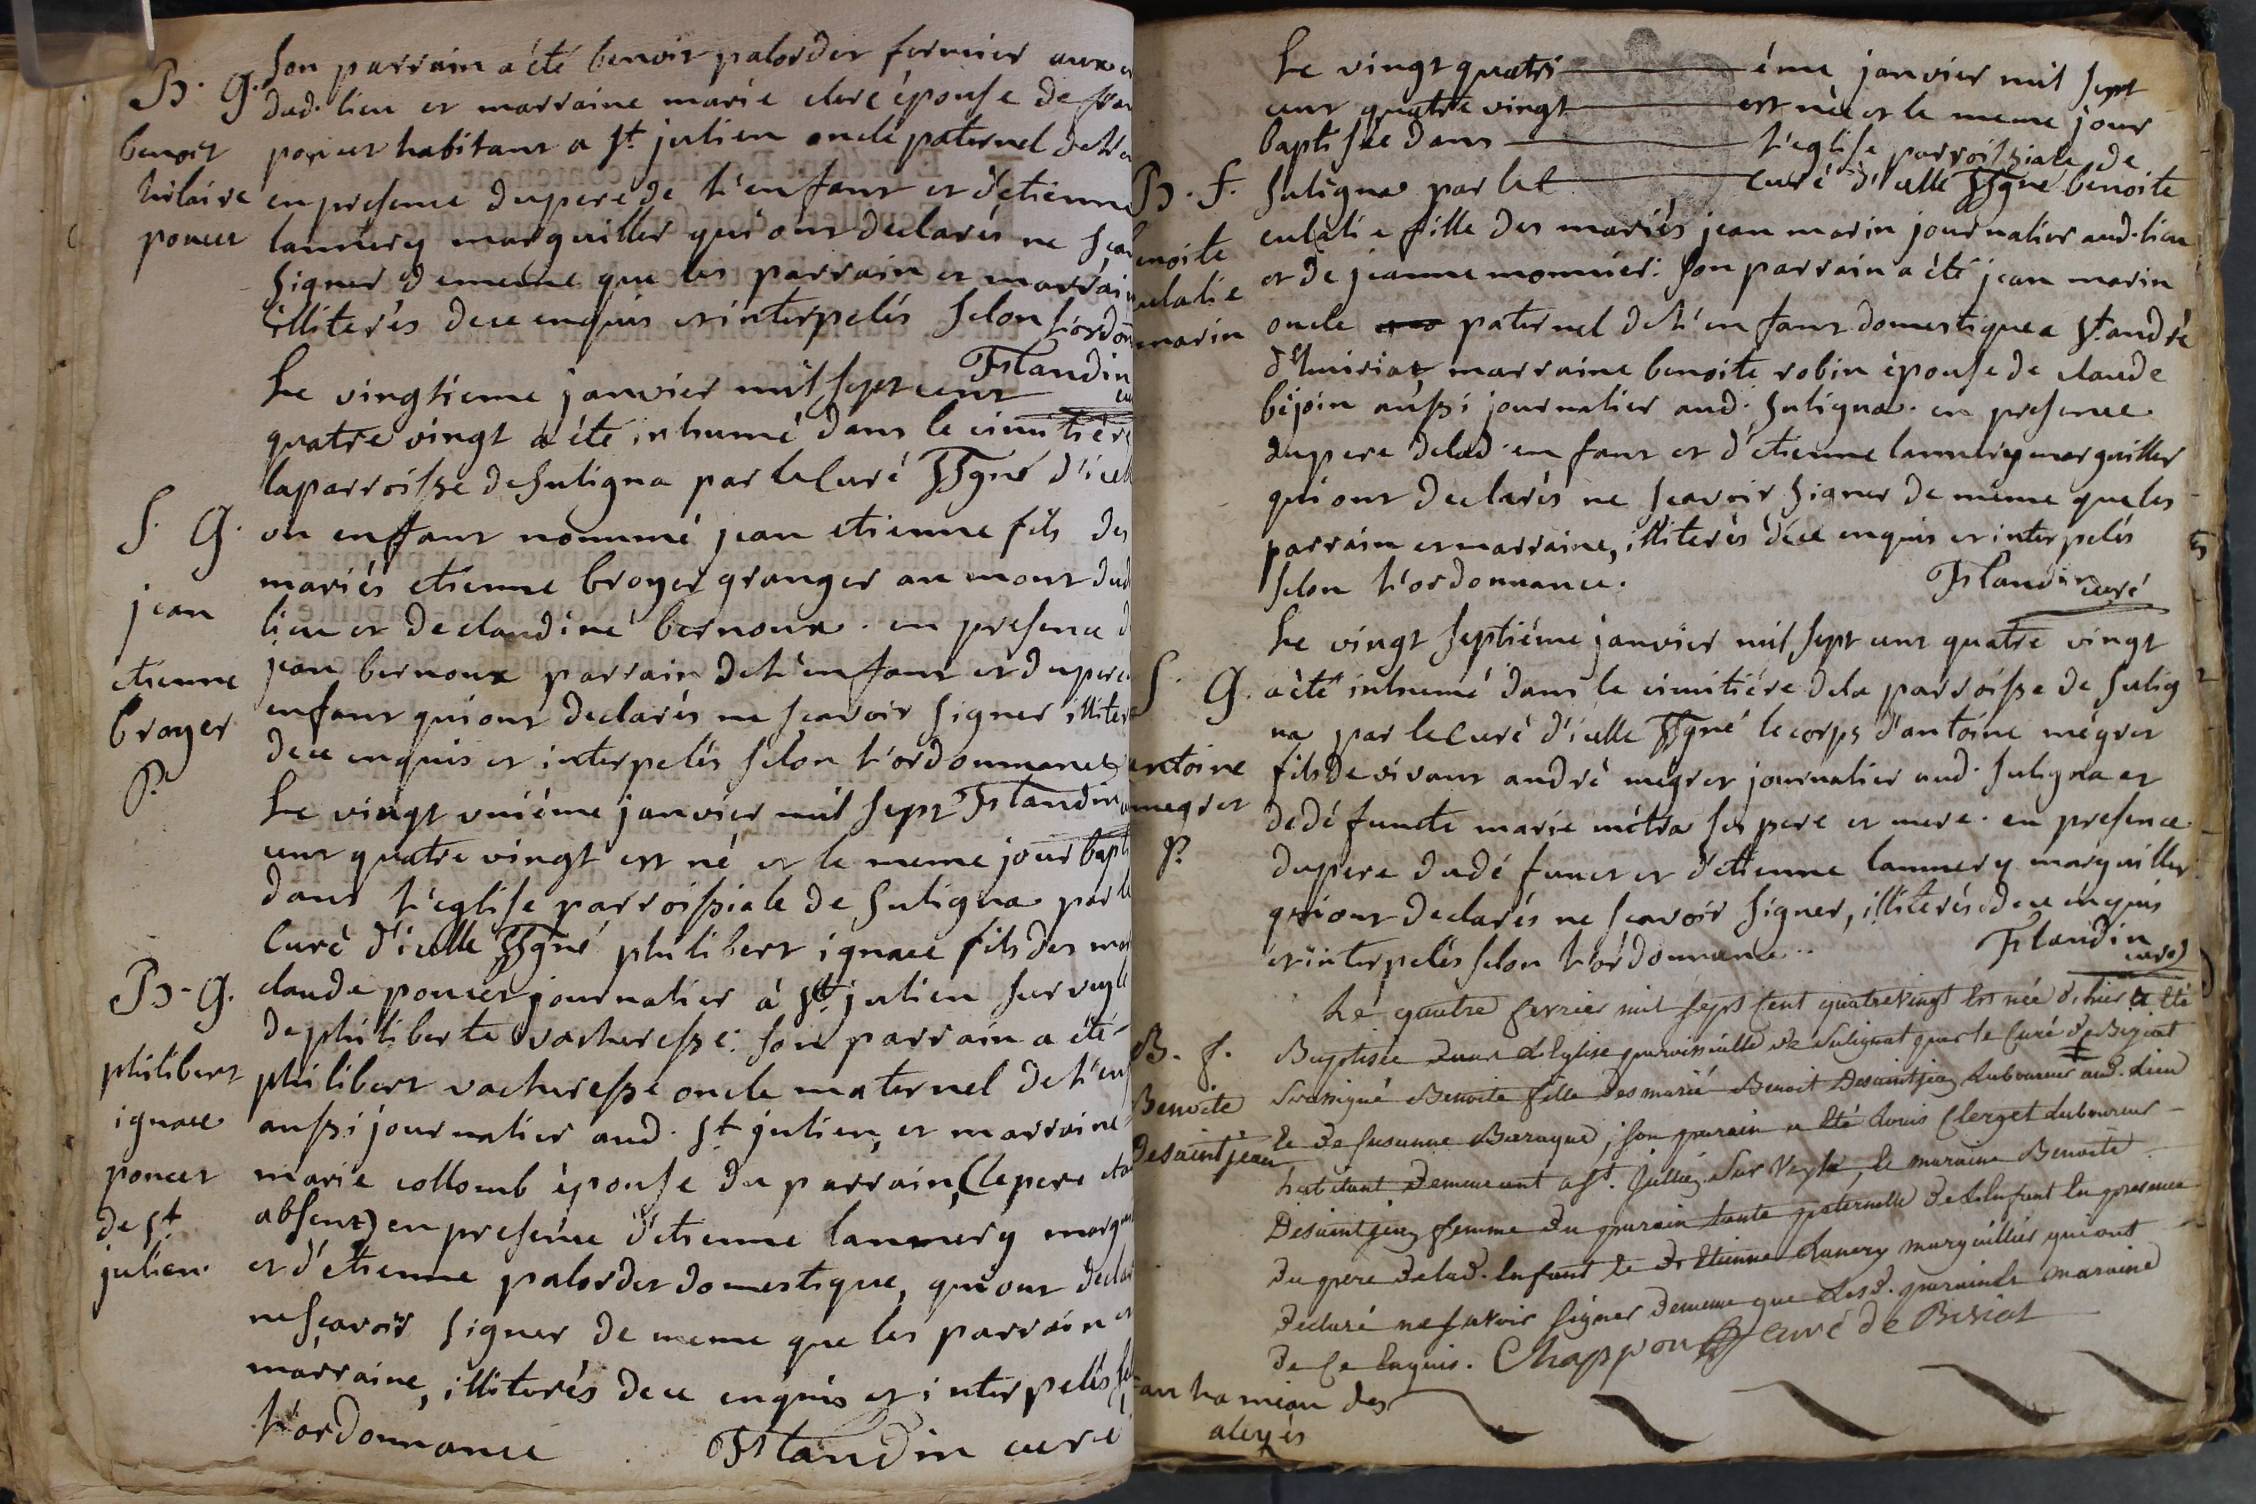 B. G.
benoit
hilaire
poncet
Son parrain a été benoit palordet fermier aux
dud. lieu et marraine marie clerc épouse de
poncet habitant a St. julien oncle paternel de l'en
en presence du pere de l'enfant et d'etienne
lannery marguiller qui ont declarés ne sca
signer de meme que les parrain et marrain
illiterés de ce enquis et interpelés selon l'ordon
Flandin
Le vingtieme janvier mil sept cent
quatre vingt a été inhumé dans le cimitière
la parroisse de Suligna par le Curé ssgné d'icell
S. G.
jean
etienne
broyer
P.
un enfant nommé jean etienne fils des
mariés etienne broyer granger au mont dud
lieu et de claudine bernoux. en presence d
jean bernoux parrain de l'enfant et du pere
enfant qui ont declarés ne scavoir signer illiter
de ce enquis et interpelés selon l'ordonnance
Flandin
Le vingt uniéme janvier mil sept
cent quatre vingt est né et le meme jour bapti
dans l'eglise parroissiale de Suligna par le
Curé d'icelle ssgné philibert ignace fils des ma
B. G.
philibert
ignace
poncet
de St
julien.
claude poncet journalier à St. julien sur veyle
de philiberte vacheresse: son parrain a été
philibert vacheresse oncle maternel de l'enf
aussi journalier aud. St julien, et marraine
marie collomb épouse du parrain, (le pere etan
absent) en presence d'etienne lannery marg
et d'etienne palordet domestique, qui ont declar
ne scavoir signer de meme que les parrain et
marraine, illiterés de ce enquis et interpelés sel
l'ordonnance Flandin curé
Le vingt quatri éme janvier mil sept
cent quatre vingt est née et le meme jour
baptisée dans l'eglise parroissiale de
Suligna par le C curé d'icelle ssgné benoite
B. f.
enoite
ulalie
marin
eulalie fille des mariés jean marin journalier aud. lieu
et de jeanne monnier: son parrain a été jean marin
oncle paternel de l'enfant domestique a St. andré
d'huiriat marraine benoite robin épouse de claude
bejoin aussi journalier aud. Suligna. en presence
du pere de lad. enfant et d'etienne lannery marguiller
qui ont declarés ne scavoir signer de même que les
parrain et marraine, illiterés de ce enquis et interpelés
selon l'ordonnance. Flandin curé
Le vingt septiéme janvier mil sept cent quatre vingt
S. G.
antoine
megret
P.
a été inhumé dans le cimitiére de la parroisse de Sulig
na par le Curé d'icelle ssgné le corps d'antoine mégret
fils de vivant andré mégret journalier aud. Suligna et
de défuncte marie métra ses pere et mere. en presence
du pere du défunct et d'etienne lannery marguiller
qui ont declarés ne scavoir signer, illiterés de ce enquis
et interpelés selon l'ordonnance.. Flandin curé
Le quatre fevrier mil sept cent quatre vingt Est née d'hier Et Eté
B. f.
Benoite
Desaintjean
Baptisée dans L'Eglise paroissialle de Sulignat par le Curé de Biziat
Soussigné Benoite fille Des marié Benoit Desaintjean Laboureur aud. Lieu
Et De Susanne Baraque; Son parain a Eté Louis Clerget Laboureur
habitant Demeurant a St. Jullien Sur Veyle, Et maraine Benoite
Desaintjean femme Du parain tante paternelle De L'Enfant En presence
Du pere De lad. Enfant Et De Etienne Lanery marguillier qui ont
Declaré ne savoir Signer De meme que Lesd. parain Et maraine
De Ce Enquis. Chappon Curé de Biziat
au hameau des
aleyés